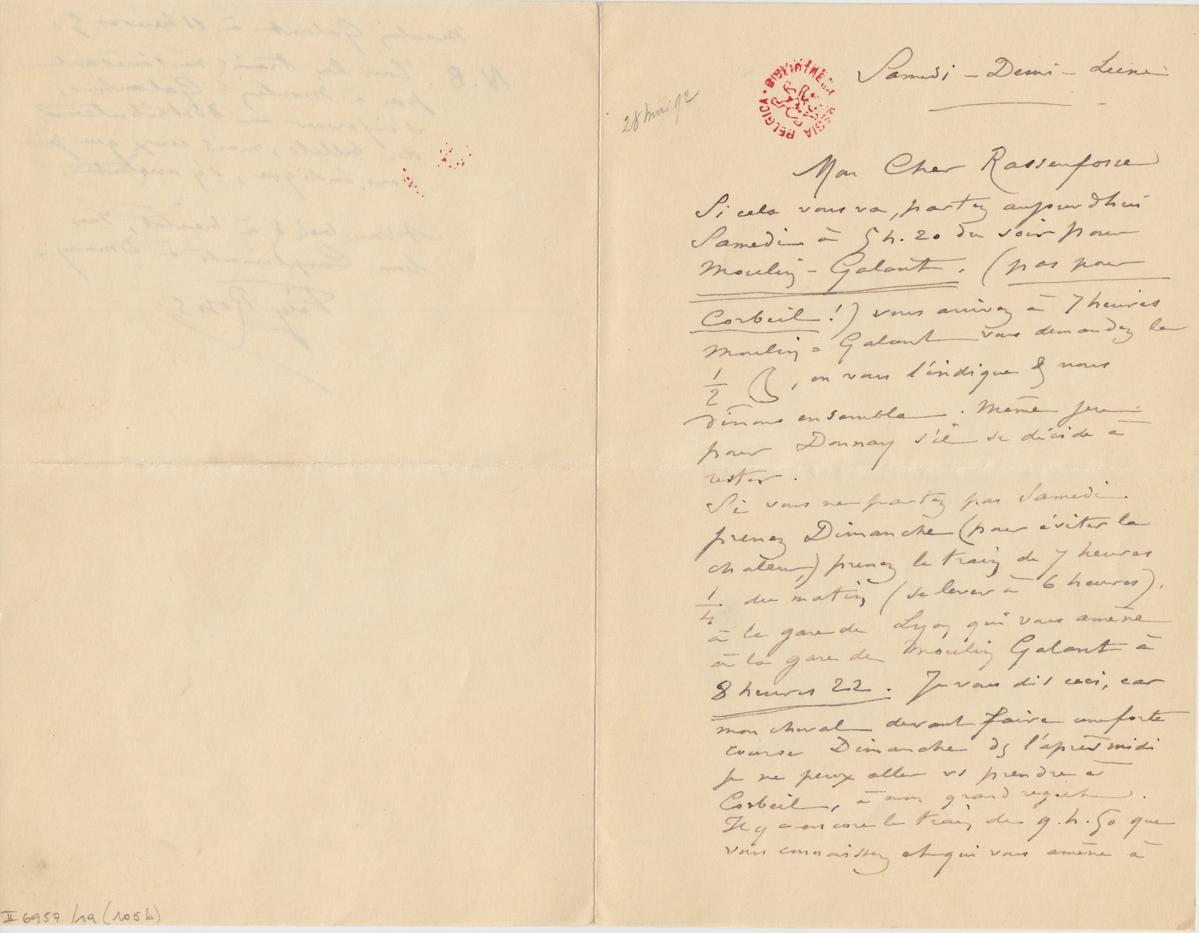 Samedi – Demi – Lune
28 mai 92
BIBLIOTHECA REGIA BELGICA
Mon Cher Rassenfosse
Si cela vous va, partez aujourd'hui
Samedi à 5 h. 20 du soir pour
Moulin – Galant. (pas pour
Corbeil !) vous arrivez à 7 heures
Moulin = Galant vous demandez la
1/2 , on vous l'indique & nous
dînons ensemble. Même jeu
pour Donnay s'il se décide à
rester.
Si vous ne partez pas Samedi.
prenez Dimanche (pour éviter la
chaleur,) prenez le train de 7 heures
1/4 du matin (se lever à 6 heures).
à la gare de Lyon qui vous amène
à la gare de Moulin Galant à
8 heures 22. Je vous dis ceci, car
mon cheval devant faire une forte
course Dimanche ds l'après midi
je ne peux aller vs prendre à
Corbeil, à mon grand regret.
Il y a encore le train de 9. h. 50 que
vous connaissez et qui vous amène à
II 6957 /19 (105 b)